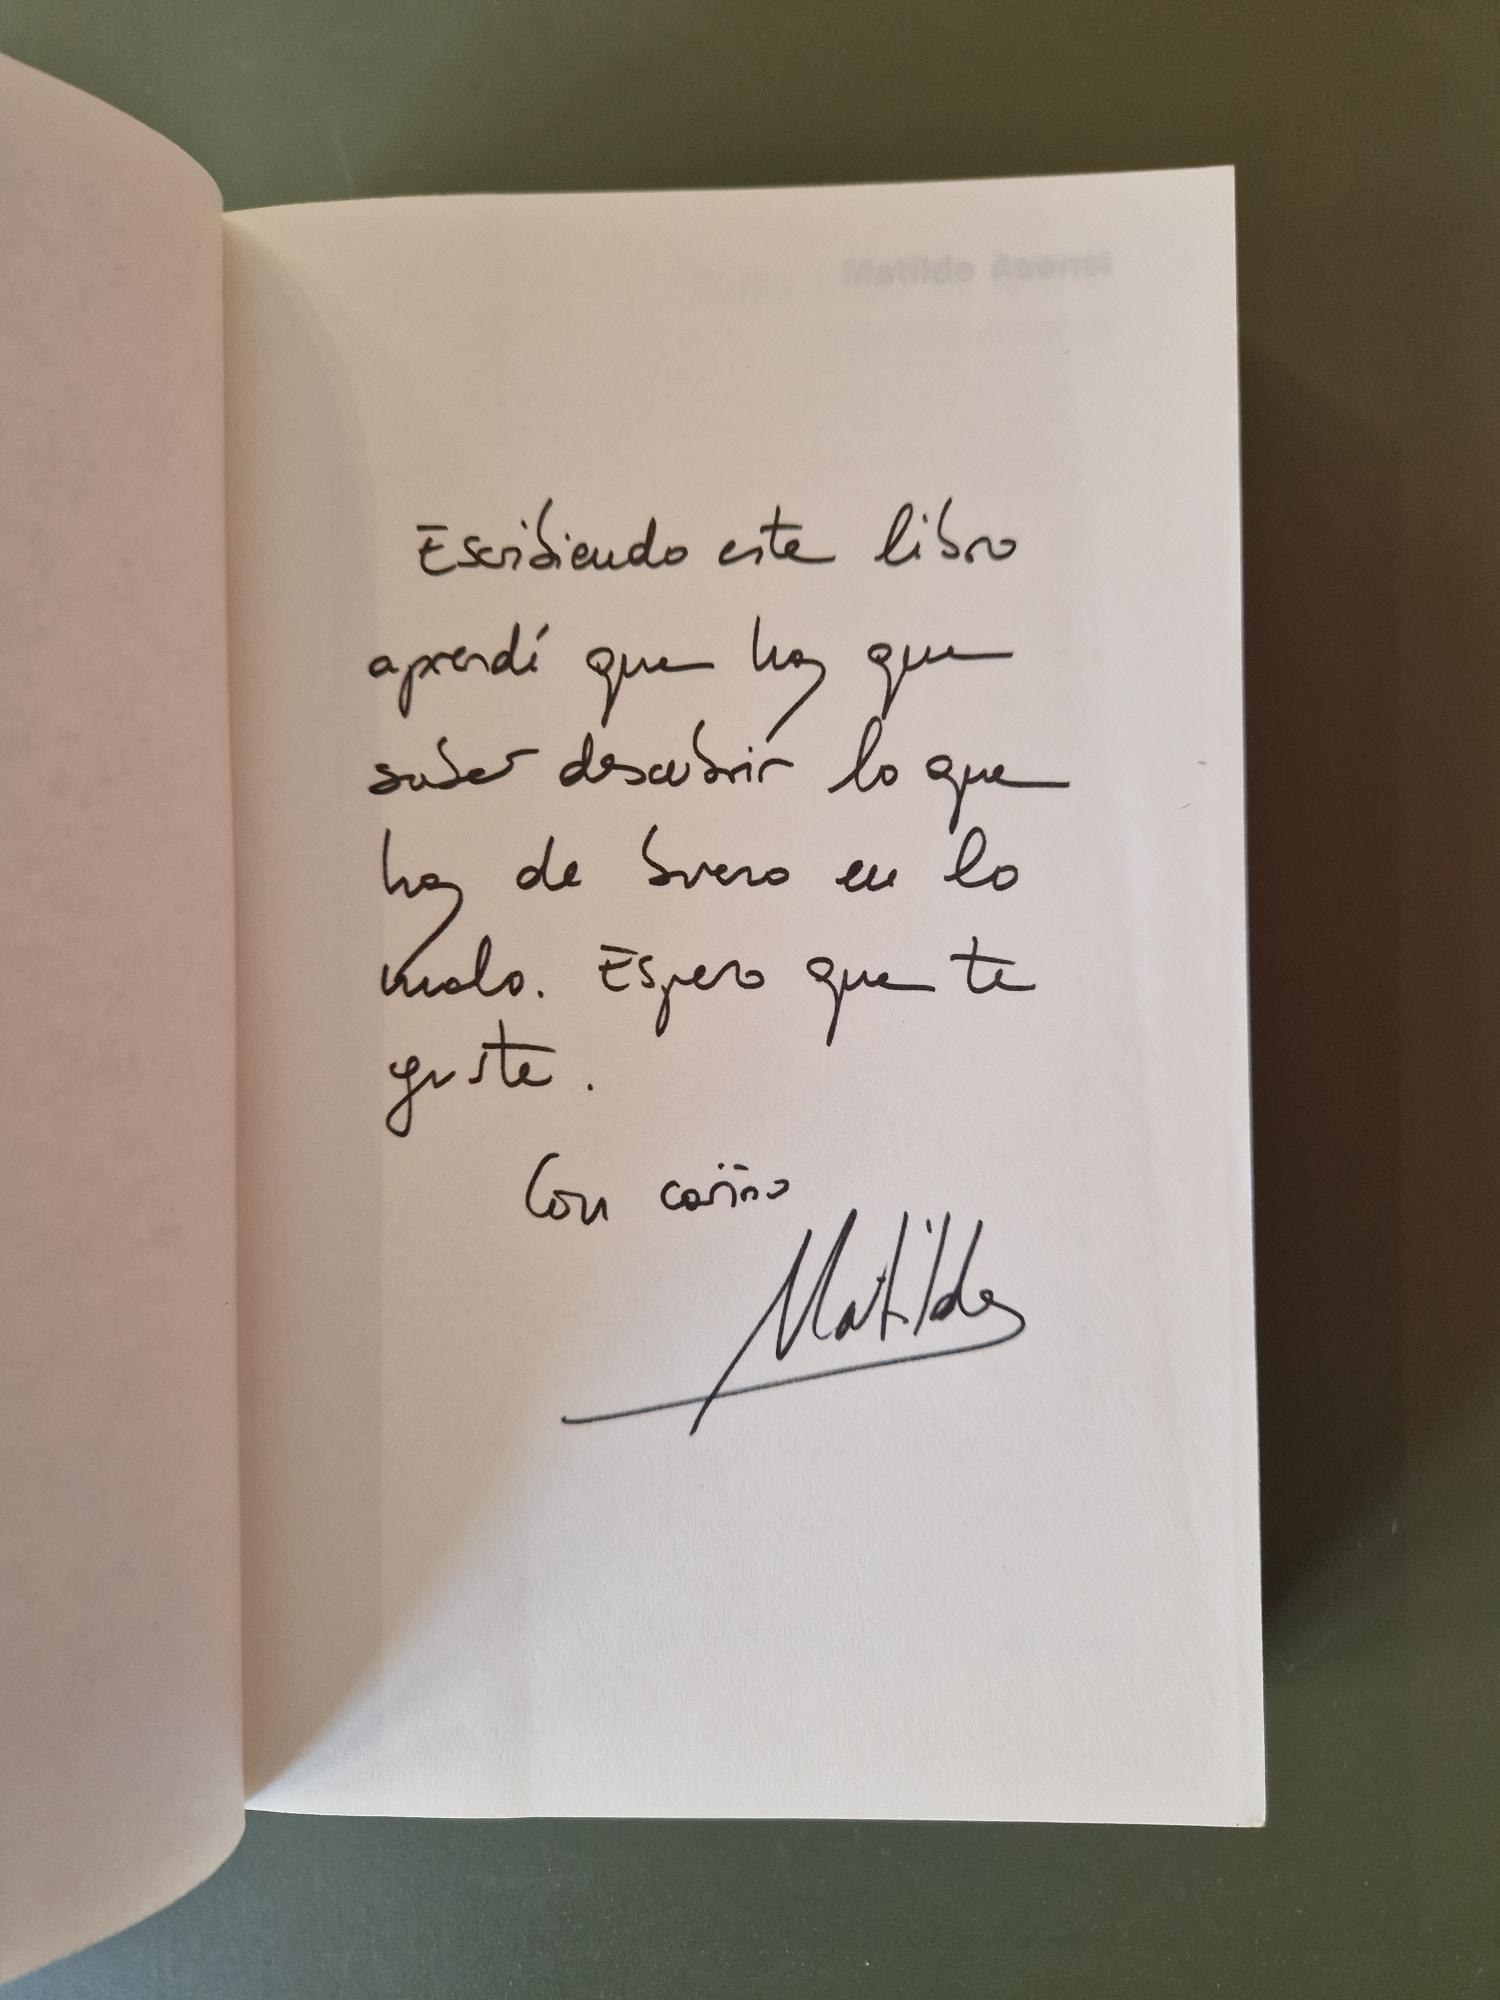 Matilde Asensi
Escribiendo este libro
aprendí que hay que
saber descubrir lo que
hay de bueno en lo
malo. Espero que te
guste.
Con cariño
Matilde